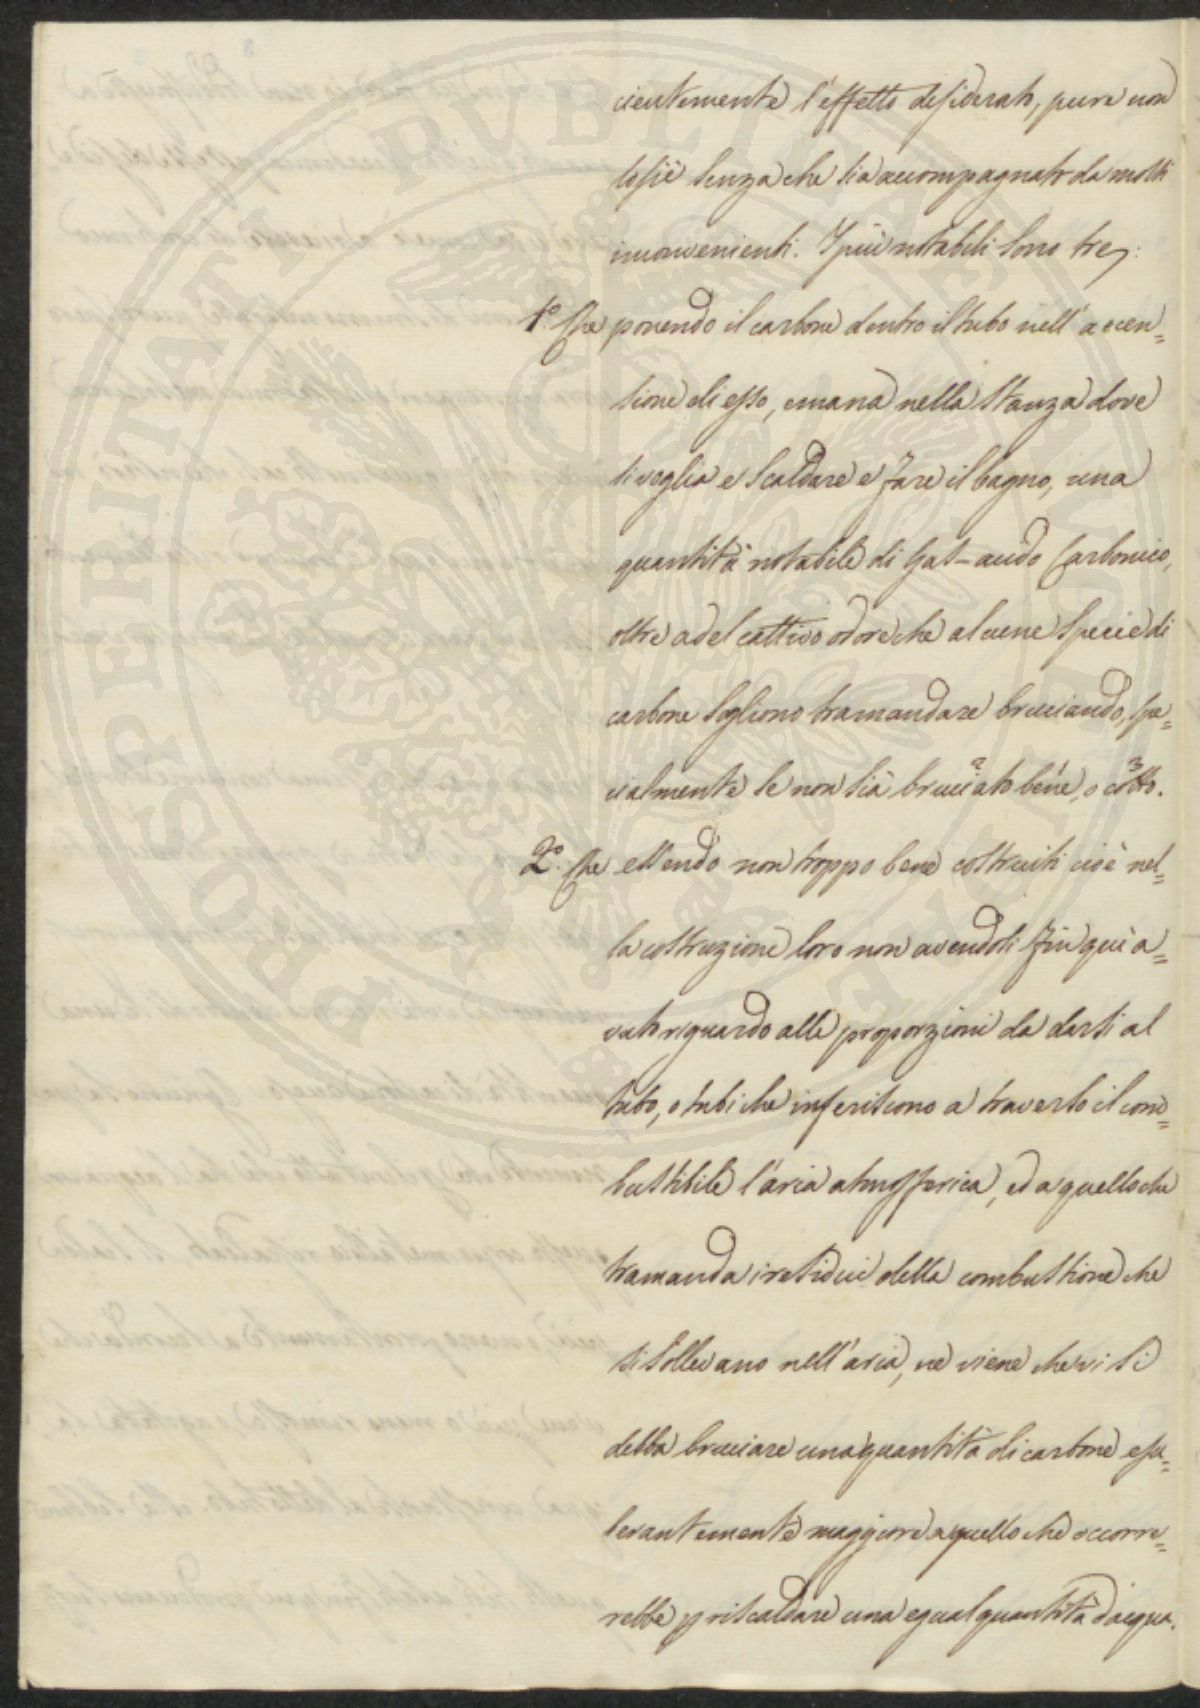 cientemente l'effetto desiderato, pure non
lo fù senza che sia accompagnato da molti
inconvenienti. I più notabili sono tre:
1º Che ponendo il carbone dentro il tubo nell'accen=
sione di esso, emana nella stanza dove
si voglia e scaldare e fare il bagno, una
quantità notabile di Gas-acido Carbonico,
oltre a del cattivo odore che alcune specie di
carbone sogliono tramandare bruciando, spe=
cialmente se non sia bruciato bene, o cotto.
2º. Che essendo non troppo bene costruiti cioè nel=
la costruzione loro non avendoli fin quì a=
vuto riguardo alle proporzioni da darsi al
tubo, o tubi che inferiscono a traverso il com=
bustibile l'aria atmosferica, ed a quello che
tramanda i residui della combustione che
si sollevano nell'aria, ne viene che vi si
debba bruciare una quantità di carbone esu=
berantemente maggiore a quello che occorre=
rebbe p riscaldare una egual quantità d'acqua.
PROSPERITATI PVBLICAE